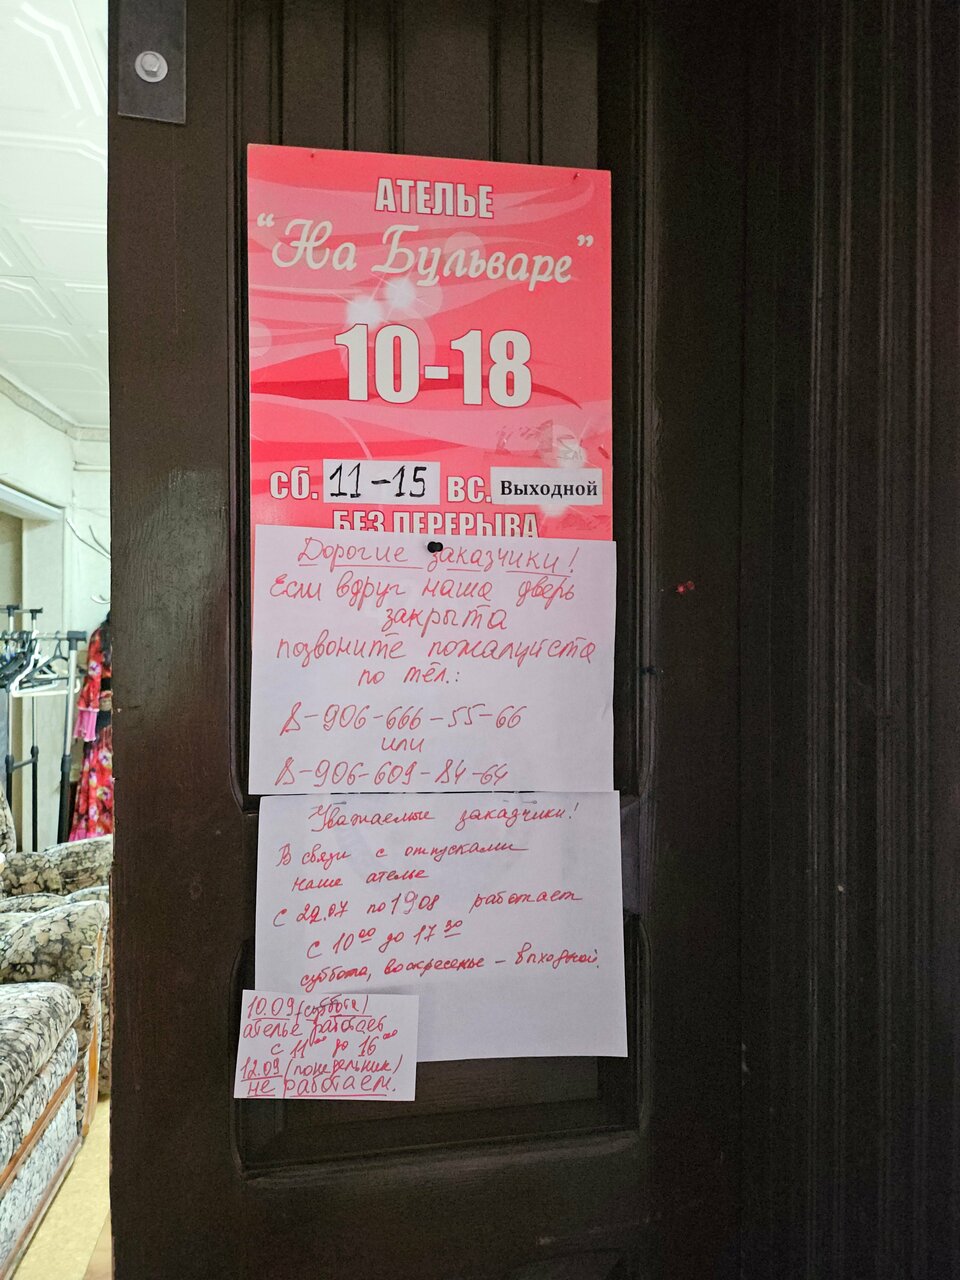 АТЕЛЬЕ
"На Бульваре"
10-18
сб. 11-15 вс. Выходной
БЕЗ ПЕРЕРЫВА
Дорогие заказчики!
Если вдруг наша дверь
закрыта
позвоните пожалуйста
по тел.:
8-906-666-55-66
или
8-906-609-84-64
Уважаемые заказчики!
В связи с отпусками
наше ателье
с 22.07 по 1908 работает
с 10 00 до 17 30
суббота, воскресенье - выходной.
10.09 (суббота)
ателье работает
с 11 00 до 16 00
12.09 (понедельник)
не работаем.